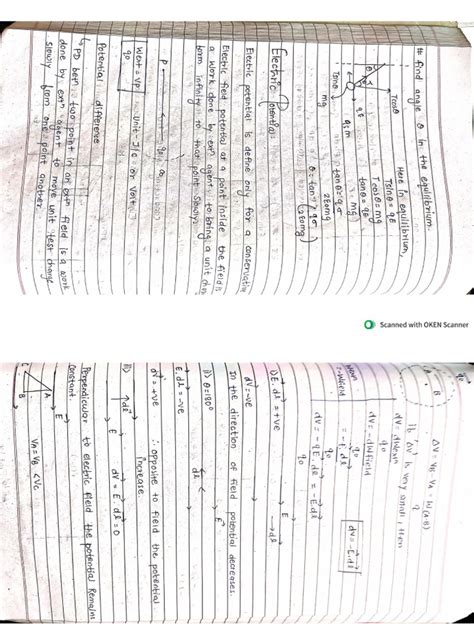 # find angle θ in the equilibrium.
Here in equilibrium,
Tsinθ = qE
Tcosθ = mg
tanθ = qE
mg
tanθ = qσ
2ε₀mg
θ = tan⁻¹ ( qσ
2ε₀mg )
Tcosθ
θ
qE
q, m
mg
Tsinθ
Electric Potential
Electric potential is define only for a conservative
Electric field potential at a point inside the field is
a work done by ext agent to bring a unit
form infinity to that point slowly.
P
∞
Wext = VP
q₀
Unit J/c or Volt
Potential difference
↳ PD betn two point in an field is a work
done by extn agent to move unit test charge
slowly from one point another.
Scanned with OKEN Scanner
A
B
ΔV = VB - VA = W(A-B)
q
if ΔV is very small, then
dV = dWean
q₀
dV = -dWfield
q₀
= -E.dl
dV = -qE.dl = -E.dl
q₀
dV = -E.dl
i) E.dl = +ve
E
dl
dV = -ve
In the direction of field potential decreases.
ii) θ = 180°
E
dl
E.dl = -ve
dV = +ve
∴ opposite to field the potential
increase.
iii)
dl
E
dV = E.dl = 0
Perpendicular to electric field the potential Remains
constant.
A
B
C
E
E
VA = VB < VC